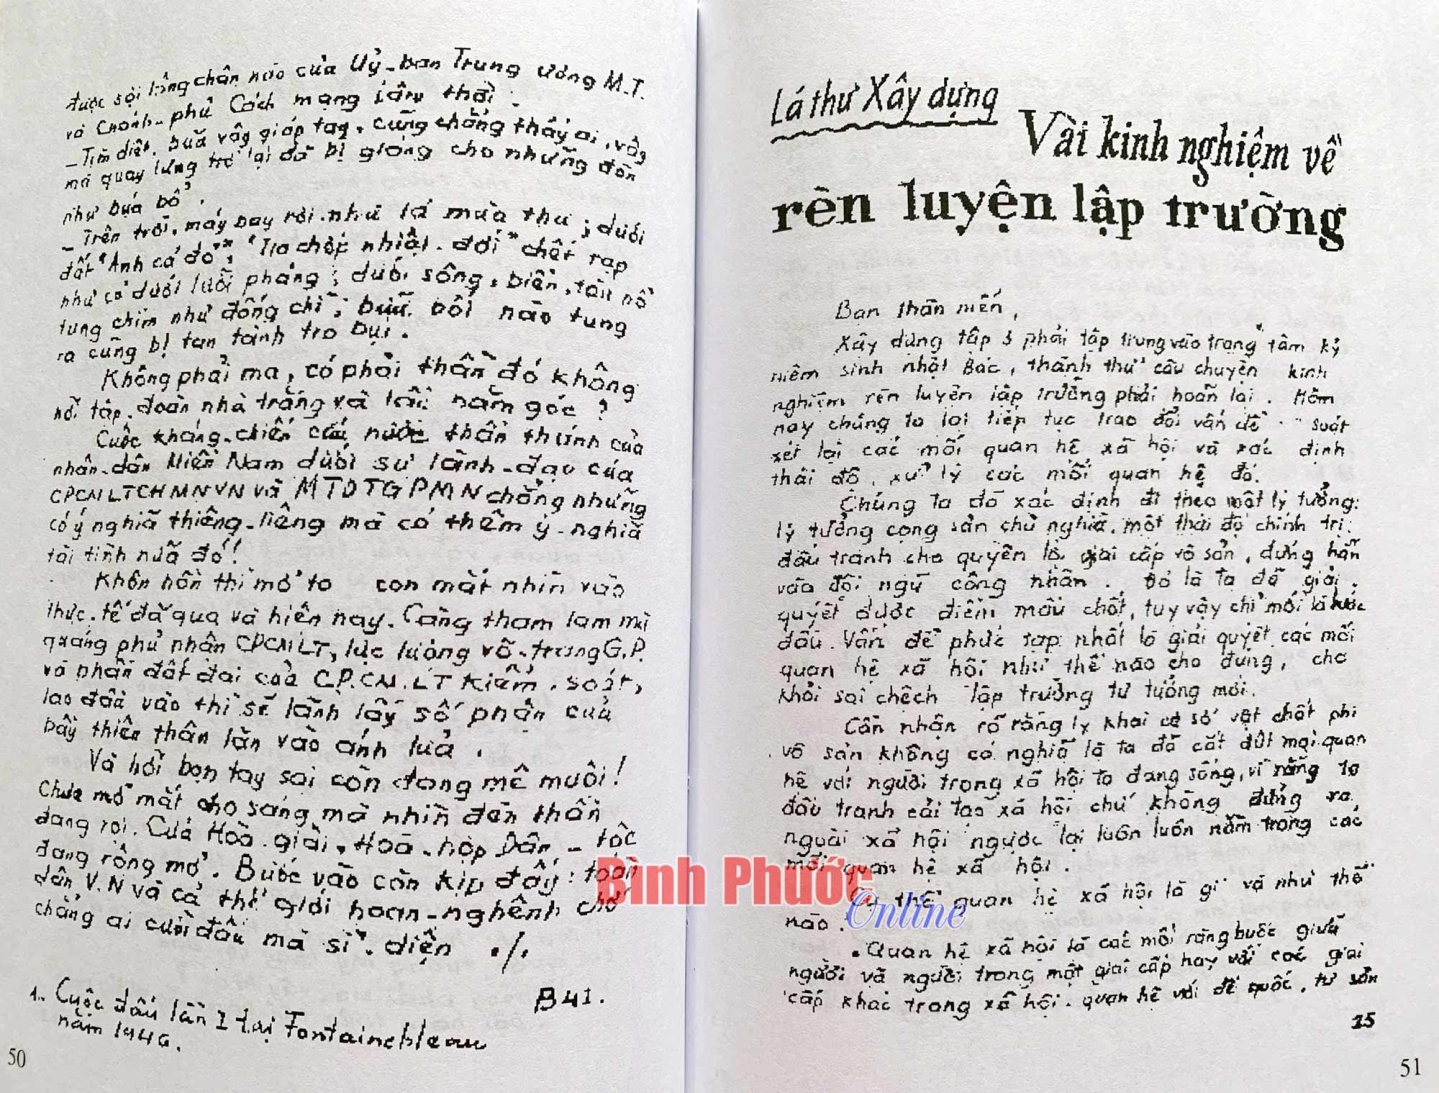 được sội tổng chân nào của Uỷ-ban Trung ương M.T.
và Chính-phủ Cách mạng Lâm thời.
-Tìm diệt, bủa vây giáp tay, cũng chẳng thấy ai, vậy
mà quay lưng trở lại đã bị giáng cho những đòn
như búa bổ.
-Trên trời, máy bay rơi như lá mùa thu; dưới
đất "Anh cả đỏ", "Tia chớp nhiệt-đới" chết rạp
như cỏ dưới lưỡi phảng; dưới sông, biển, tàu nổ
tung chìm như đống chì; bửu bối nào tung
ra cũng bị tan tành tro bụi.
Không phải ma, có phải thần đó không
hỡi tập-đoàn nhà trắng và lầu năm góc?
Cuộc kháng-chiến cứu nước thần thánh của
nhân-dân Miền Nam dưới sự lãnh-đạo của
CPCMLTCHMNVN và MTDTGPMN chẳng những
có ý nghĩa thiêng-liêng mà có thêm ý-nghĩa
tài tình nữa đó!
Khôn hồn thì mở to con mắt nhìn vào
thực-tế đã qua và hiện nay. Càng tham lam mà
quàng phủ nhận CPCMLT, lực lượng võ-trang G.P.
và phần đất đai của C.P.CM.LT kiểm-soát,
lao đầu vào thì sẽ lãnh lấy số phận của
bầy thiêu thân lăn vào ánh lửa.
Và hỡi bọn tay sai còn đang mê muội!
Chưa mở mắt cho sáng mà nhìn đến thần
đang rọi. Cửa Hoà-giải, Hoà-hợp Dân-tộc
đang rộng mở. Bước vào còn kịp đấy: toàn
dân V.N và cả thế giới hoan-nghênh chớ
chẳng ai cười đâu mà sĩ-diện ./.
B41.
1.. Cuộc đấu lần I tại Fontainebleau
năm 1946.
50
Lá thư Xây dựng
Vài kinh nghiệm về
rèn luyện lập trường
Bạn thân mến,
Xây dựng tập 3 phải tập trung vào trọng tâm kỷ
niệm sinh nhật Bác, thành thử câu chuyện kinh
nghiệm rèn luyện lập trường phải hoãn lại. Hôm
nay chúng ta lại tiếp tục trao đổi vấn đề "soát
xét lại các mối quan hệ xã hội và xác định
thái độ, xử lý các mối quan hệ đó.
Chúng ta đã xác định đi theo một lý tưởng:
lý tưởng cộng sản chủ nghĩa, một thái độ chính trị:
đấu tranh cho quyền lợi giai cấp vô sản, đứng hẳn
vào đội ngũ công nhân. Đó là ta đã giải
quyết được điểm mấu chốt, tuy vậy chỉ mới là bước
đầu. Vấn đề phức tạp nhất là giải quyết các mối
quan hệ xã hội như thế nào cho đúng, cho
khỏi sai chệch lập trường tư tưởng mới.
Cần nhận rõ rằng ly khai cơ sở vật chất phi
vô sản không có nghĩa là ta đã cắt đứt mọi quan
hệ với người trong xã hội ta đang sống, vì rằng ta
đấu tranh cải tạo xã hội chứ không đứng ra
ngoài xã hội ngược lại luôn luôn nằm trong các
mối quan hệ xã hội.
Cụ thể quan hệ xã hội là gì và như thế
nào.
. Quan hệ xã hội là các mối ràng buộc giữa
người và người trong một giai cấp hay với các giai
cấp khác trong xã hội. quan hệ với đế quốc, tư sản
25
51
Bình Phước
Online